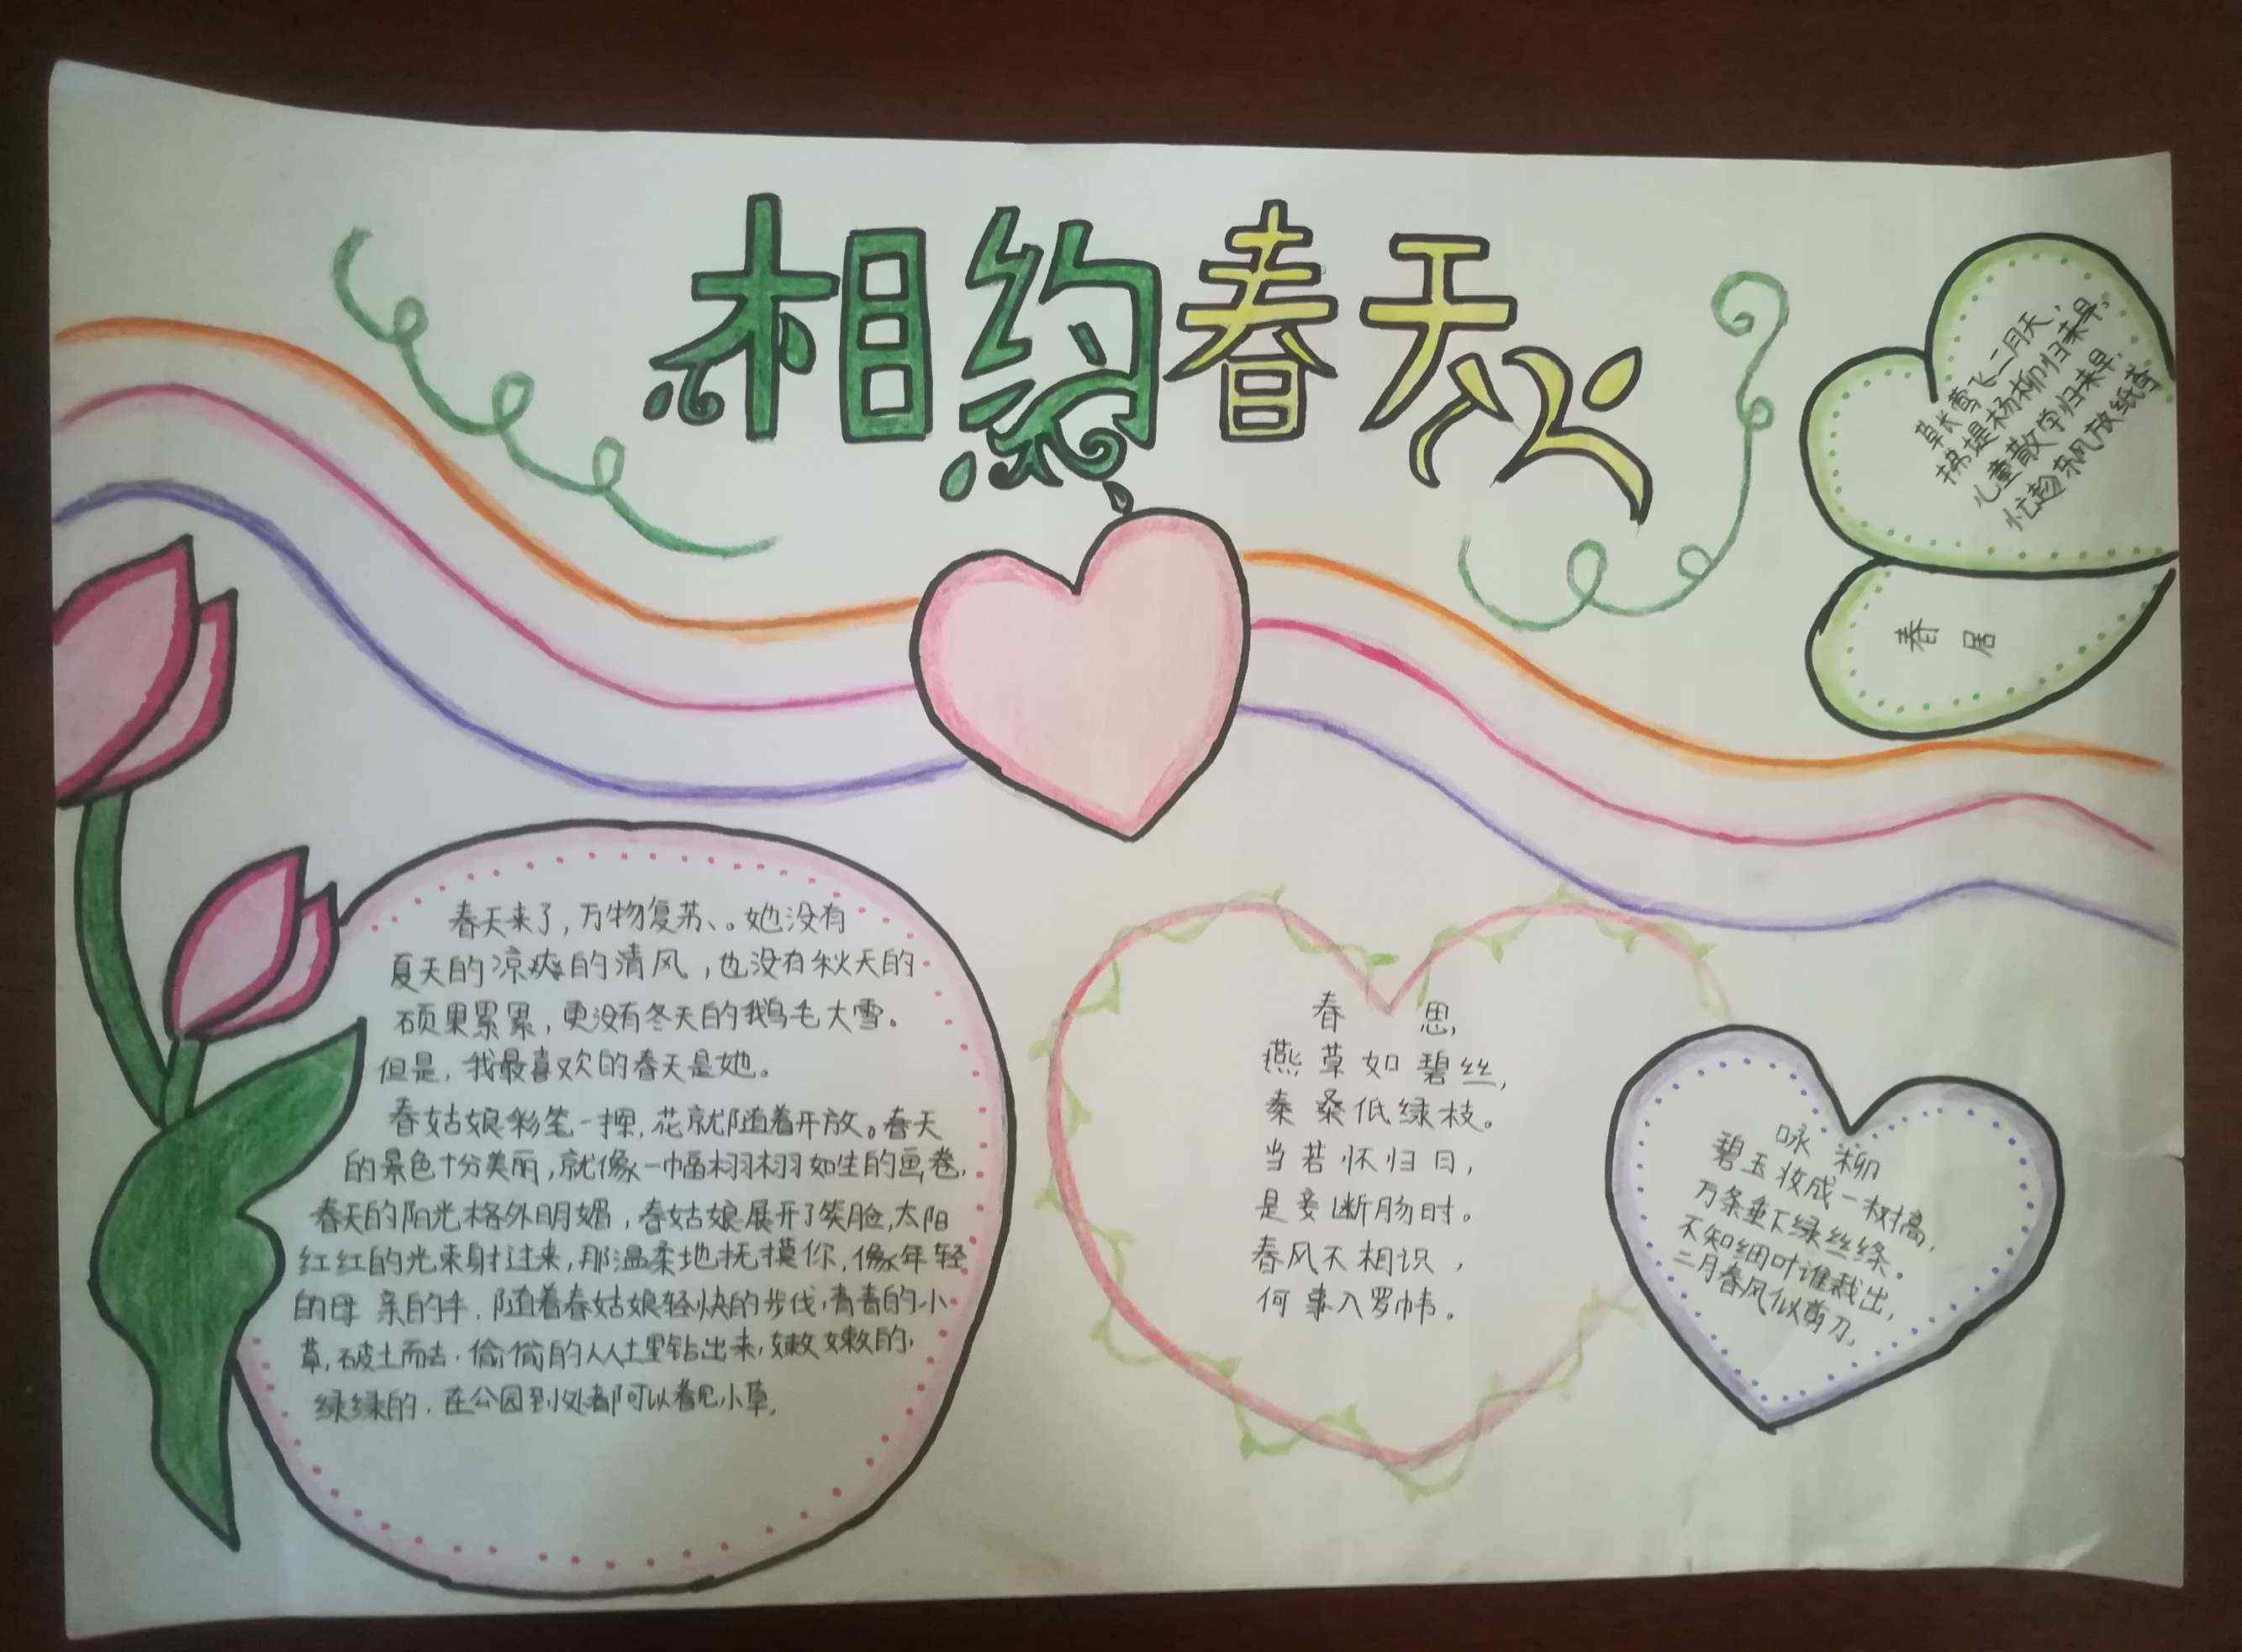 相约春天
草长莺飞二月天，
拂堤杨柳归来早，
儿童散学归来早，
忙趁东风放纸鸢
春居
春天来了，万物复苏、。她没有
夏天的凉爽的清风，也没有秋天的
硕果累累，更没有冬天的鹅毛大雪。
但是，我最喜欢的春天是她。
春姑娘彩笔一挥，花就随着开放。春天
的景色十分美丽，就像一幅栩栩如生的画卷，
春天的阳光格外明媚，春姑娘展开了笑脸，太阳
红红的光束射过来，那温柔地抚摸你，像年轻
的母亲的手，随着春姑娘轻快的步伐，青青的小
草，破土而去，偷偷的从土里钻出来，嫩嫩的，
绿绿的，在公园到处都可以看见小草，
春思，
燕草如碧丝，
秦桑低绿枝。
当若怀归日，
是妾断肠时。
春风不相识，
何事入罗帏。
咏柳
碧玉妆成一树高，
万条垂下绿丝绦。
不知细叶谁裁出，
二月春风似剪刀，